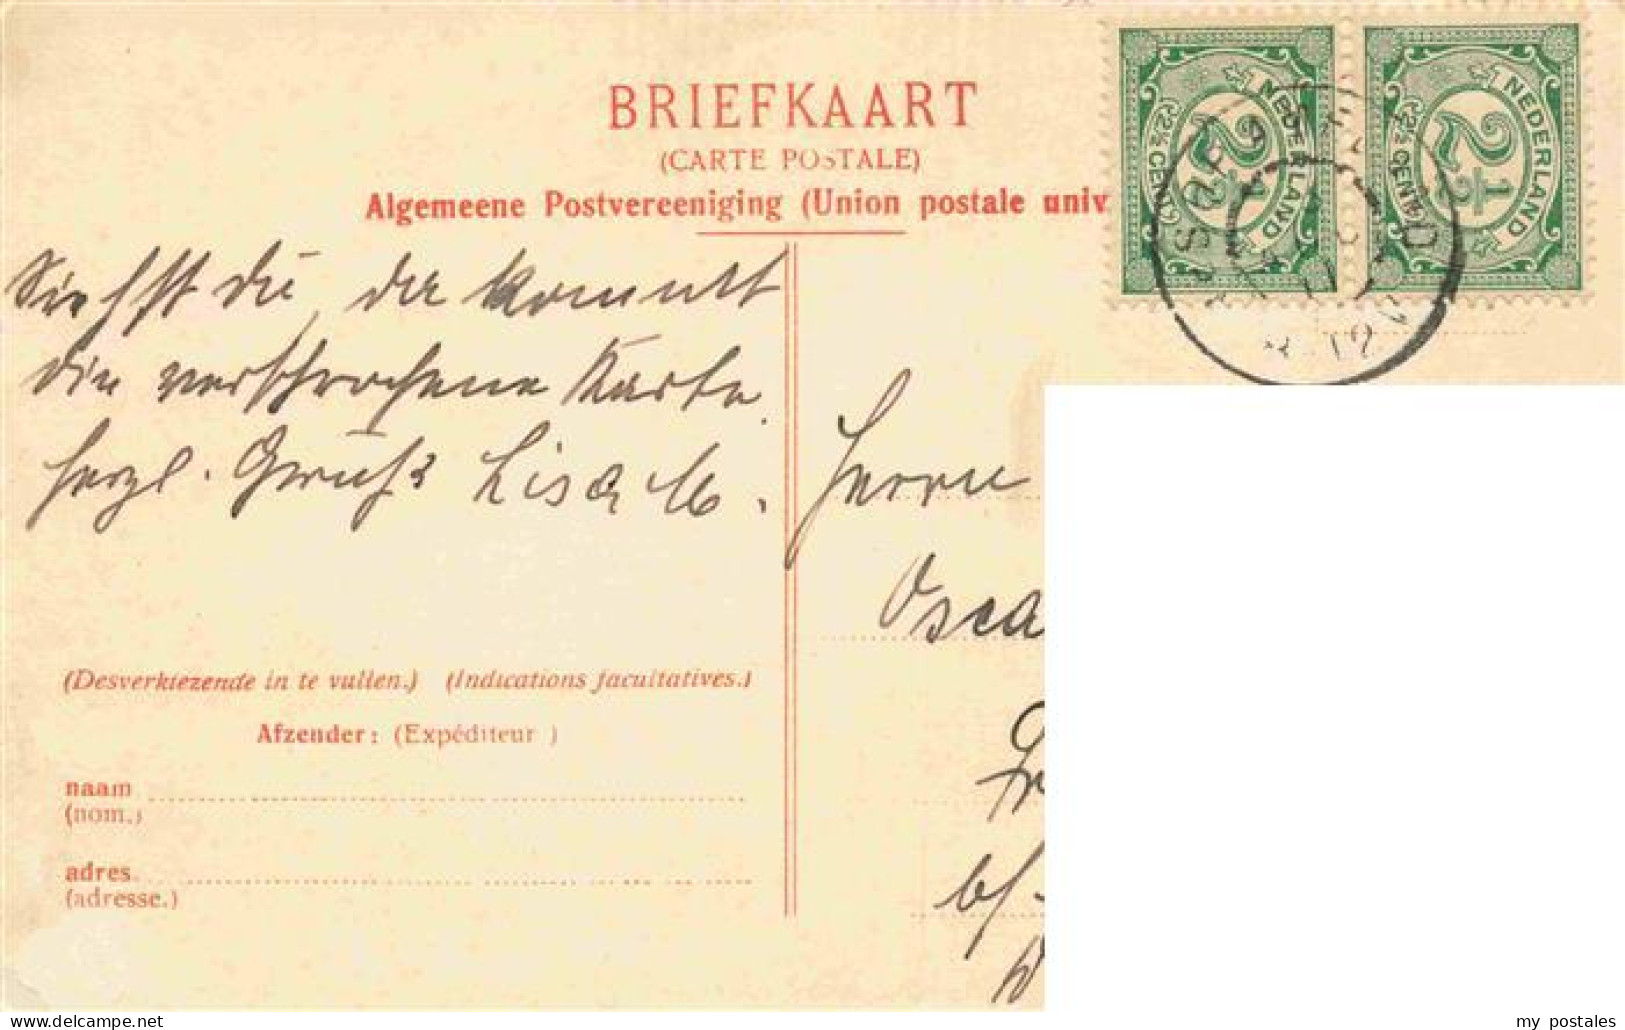 BRIEFKAART
(CARTE POSTALE)
Algemeene Postvereeniging (Union postale univ
NEDERLAND
2½
(2½ CENT)
NEDERLAND
2½
(2½ CENT)
Siehst du, da kommt
die versprochene Karte.
herzl. Gruß Lisa M.
Herrn
Osca
(Desverkiezende in te vullen.) (Indications facultatives.)
Afzender: (Expéditeur )
naam
(nom.)
adres.
(adresse.)
my postales